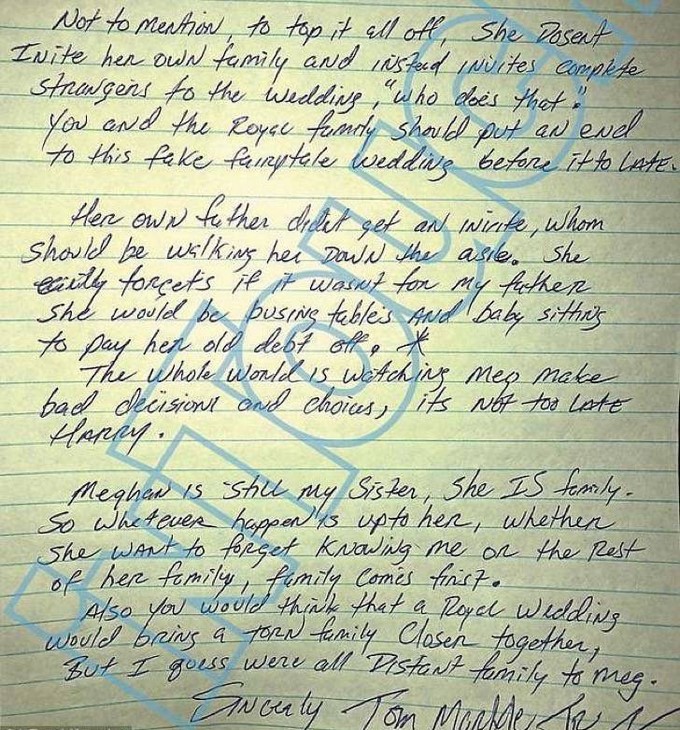 Not to mention, to top it all off, She Dosent
Inite her own family and instead invites complete
strangers to the wedding, "who does that."
You and the Royal family should put an end
to this fake fairytale wedding before it to LATE.
Her own father didnt get an invite, whom
should be walking her Down the asle. She
forgets if it wasnt for my father
She would be busing tables And baby sitting
to pay her old debt off. *
The whole World is watching Meg make
bad decisions and choices, its NOT too LATE
HARRY.
Meghan is still my Sister, She IS family.
So whatever happen is upto her, whether
she WANT to forget Knowing me or the Rest
of her family, family comes first.
Also you would think that a Royal Wedding
would bring a TORN family Closer together,
But I guess were all Distant family to Meg.
Sincerly Tom Markle, Jr